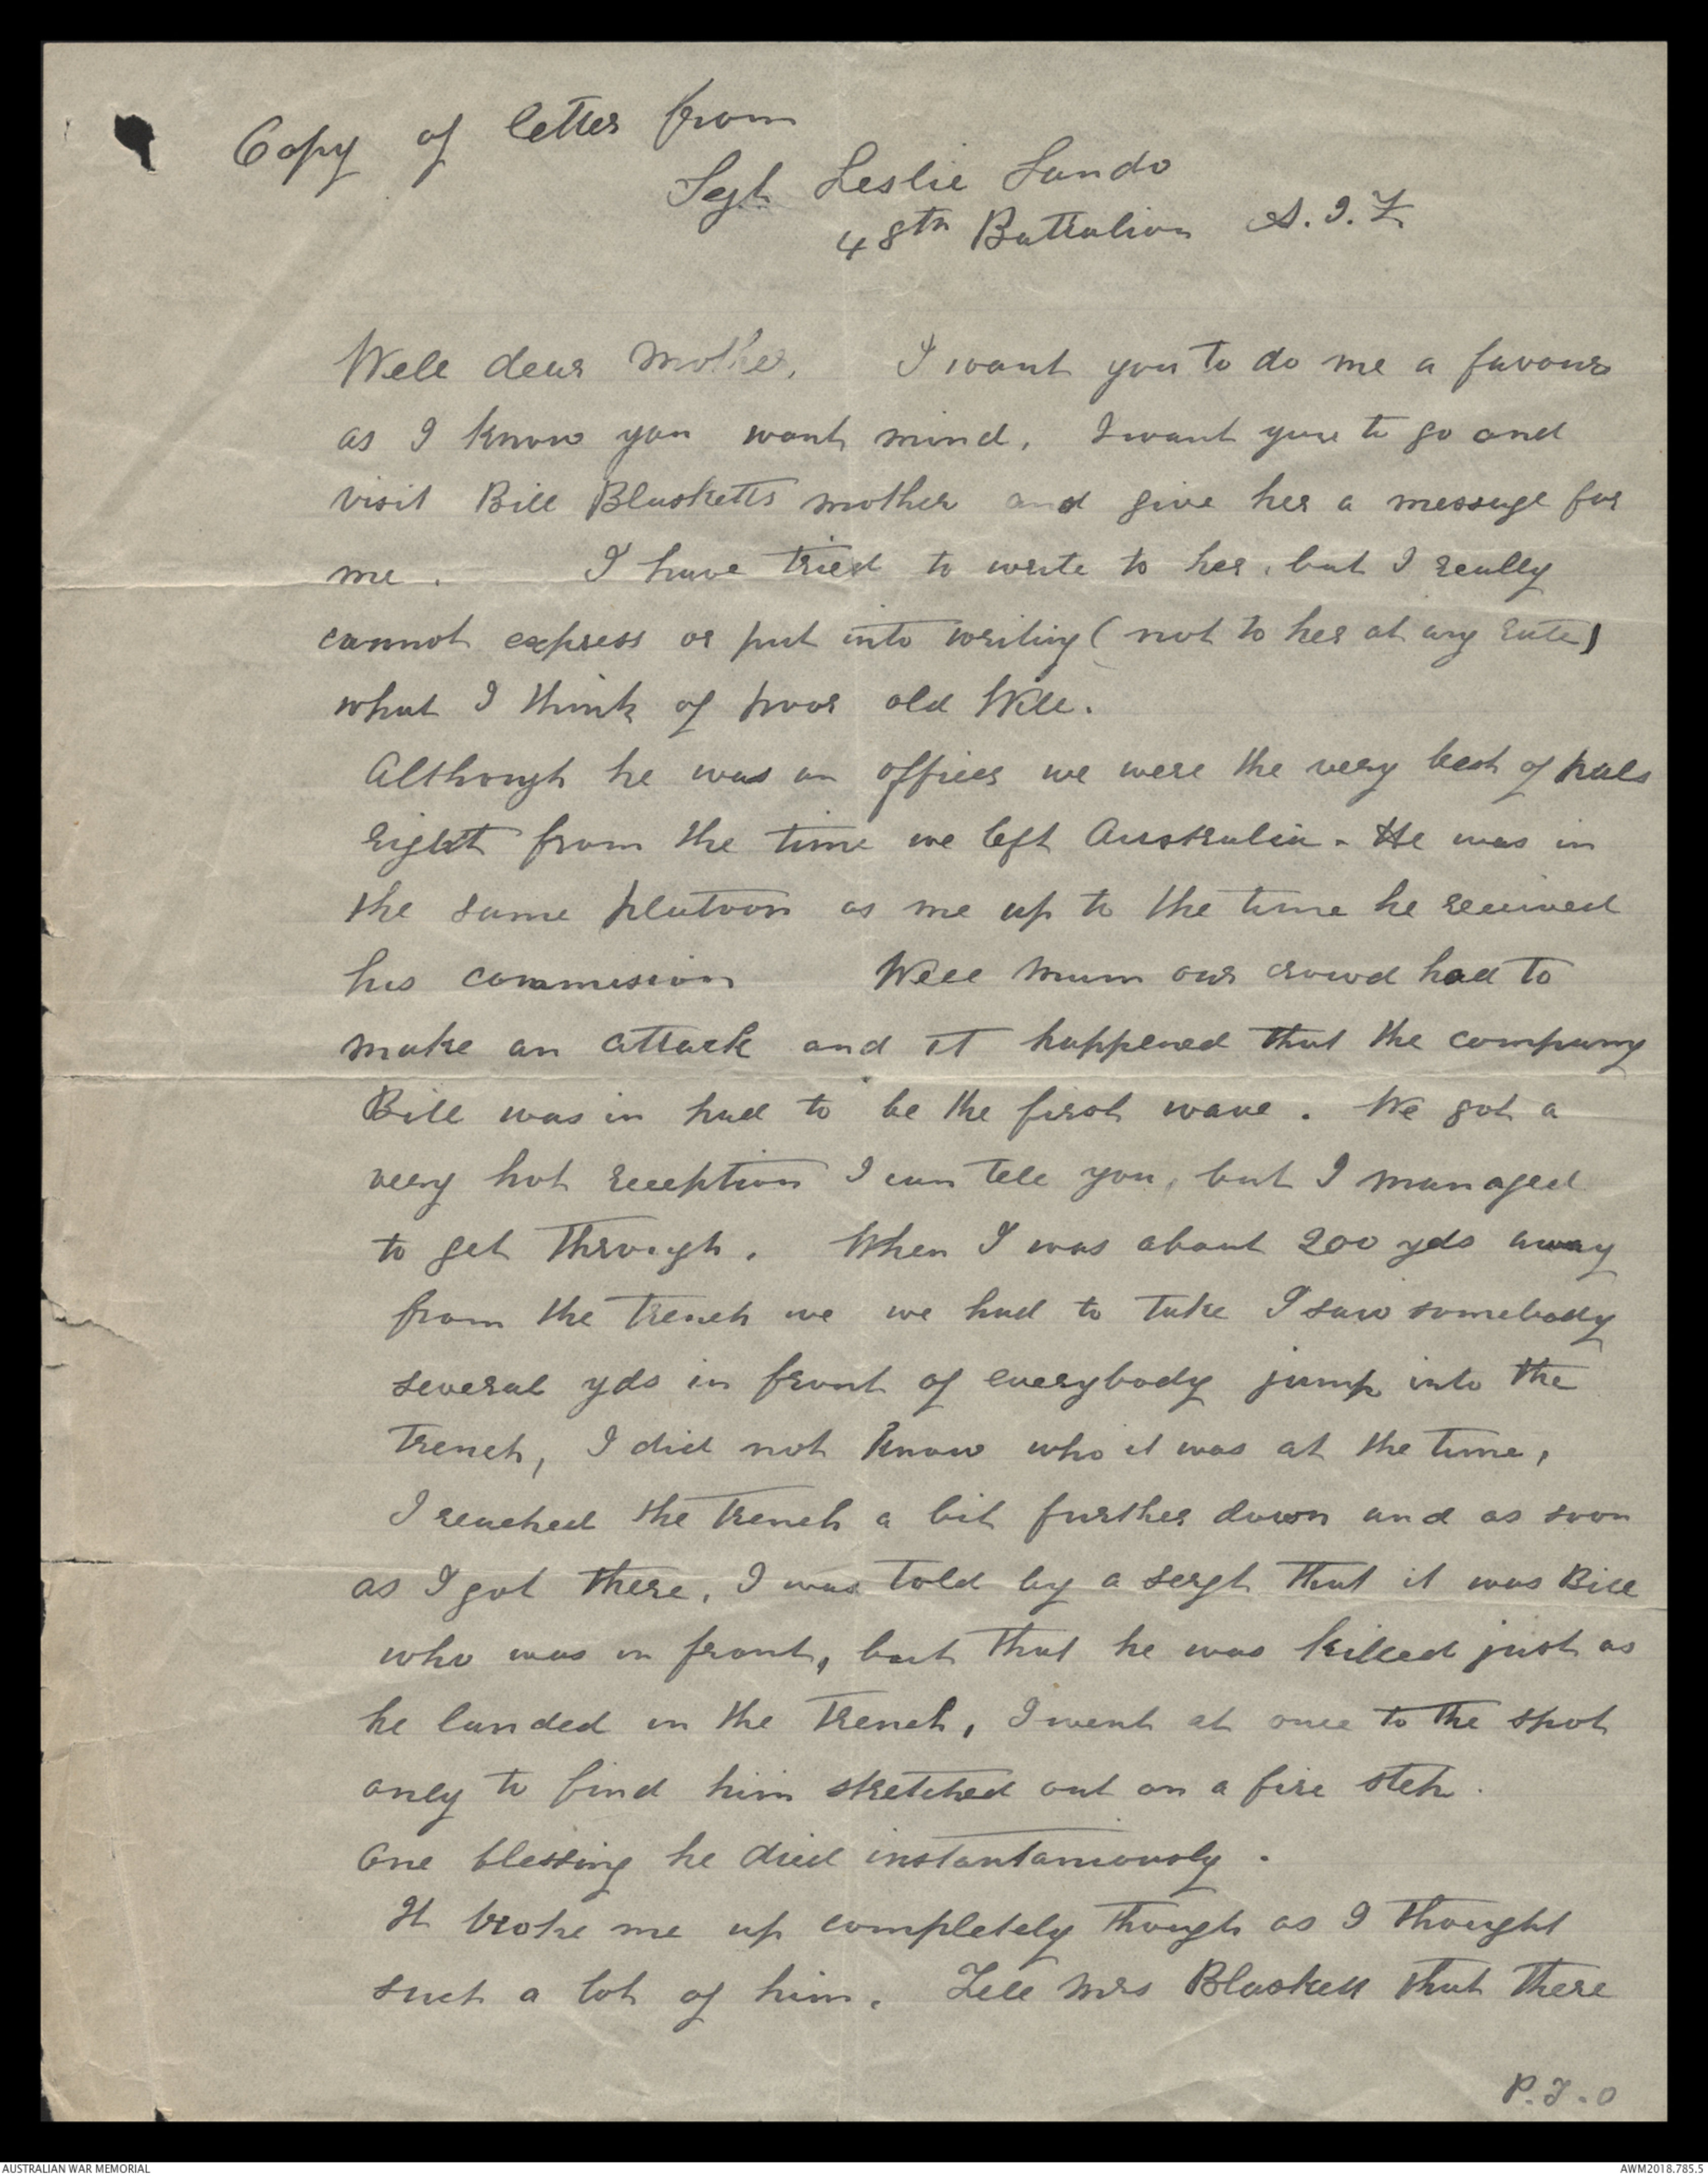 Copy of letter from
Sgt Leslie Sando
48th Battalion A.I.F
Well dear Mother, I want you to do me a favour
as I know you wont mind, I want you to go and
visit Bill Blasketts mother and give her a message for
me. I have tried to write to her, but I really
cannot express or put into writing (not to her at any rate)
what I think of poor old Will.
Although he was an officer we were the very best of pals
right from the time we left Australia. He was in
the same platoon as me up to the time he received
his commision Well Mum our crowd had to
make an attack and it happened that the company
Bill was in had to be the first wave. We got a
very hot reception I can tell you, but I managed
to get through. When I was about 200 yds away
from the trench we we had to take I saw somebody
several yds in front of everybody jump into the
trench, I did not know who it was at the time,
I reached the trench a bit further down and as soon
as I got there, I was told by a sergt that it was Bill
who was in front, but that he was killed just as
he landed in the trench, I went at once to the spot
only to find him stretched out on a fire step.
One blessing he died instantaniously.
It broke me up completely though as I thought
such a lot of him. Tell Mrs Blaskett that there
P.T.O
AUSTRALIAN WAR MEMORIAL
AWM2018.785.5